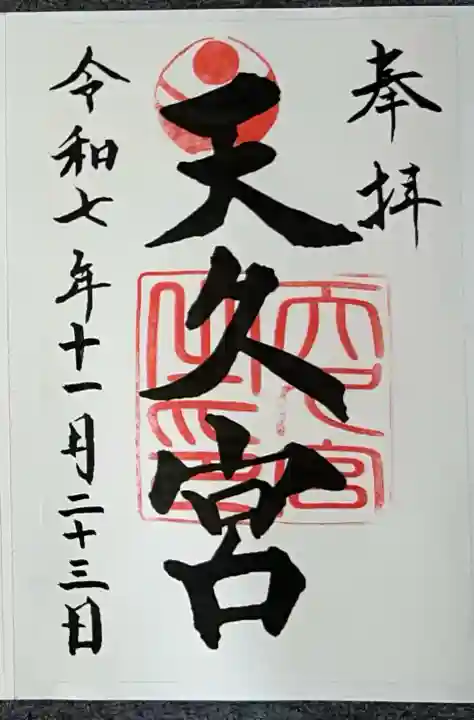 奉拝
天久宮
令和七年十一月二十三日